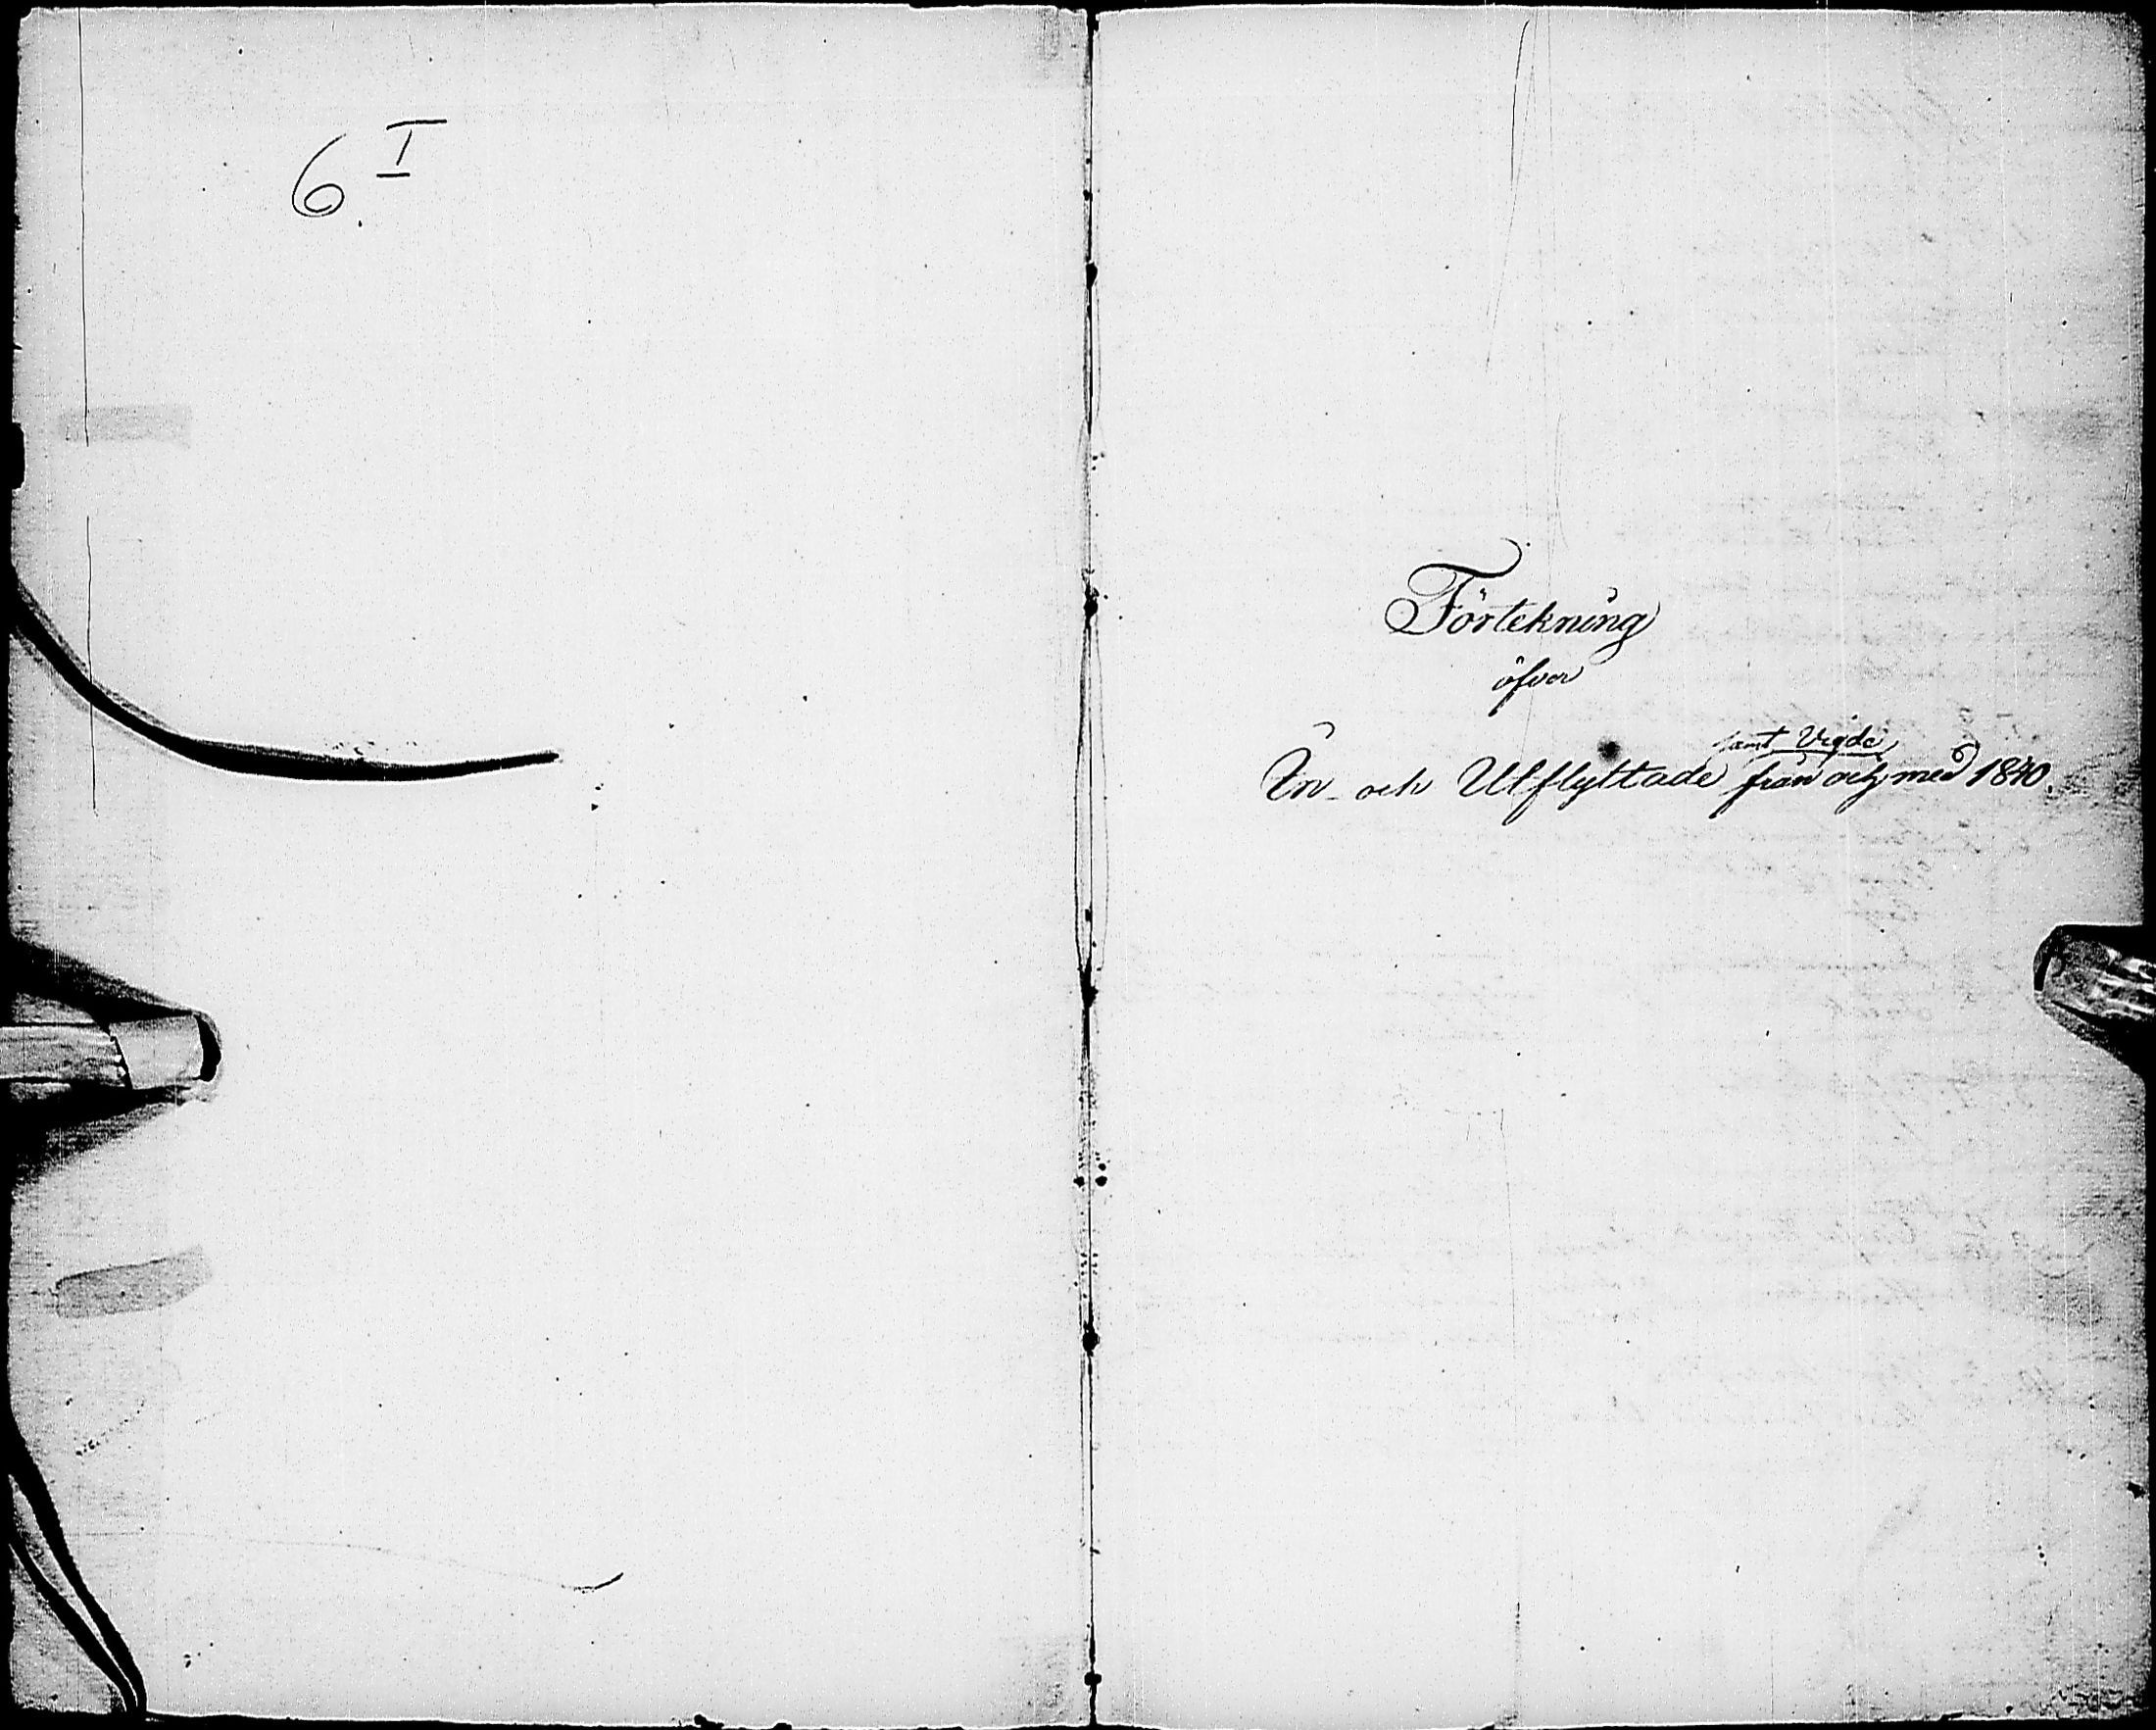 6. I
Förtekning
öfver
samt Vigde
In- och Utflyttade från och med 1840.